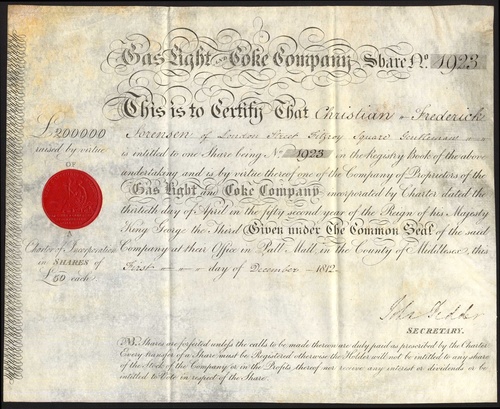 Gas Light AND Coke Company Share No. 1923
This is to Certify That Christian Frederick
Sorensen of London Street Fitzroy Square Gentleman
is entitled to one Share being No. 1923 in the Registry Book of the above
undertaking and is by virtue thereof one of the Company of Proprietors of the
Gas Light and Coke Company incorporated by Charter dated the
thirtieth day of April in the fifty second year of the Reign of his Majesty
King George the Third Given under the Common Seal of the said
Company at their Office in Pall Mall in the County of Middlesex, this
First day of December 1812
£200000
raised by virtue
OF
A
Charter of Incorporation
in SHARES of
£50 each
SECRETARY.
N.B. Shares are forfeited unless the calls to be made thereon are duly paid as prescribed by the Charter
Every transfer of a Share must be Registered otherwise the Holder will not be entitled to any share
of the Stock of the Company or in the Profits thereof nor receive any interest or dividends or be
entitled to Vote in respect of the Share.